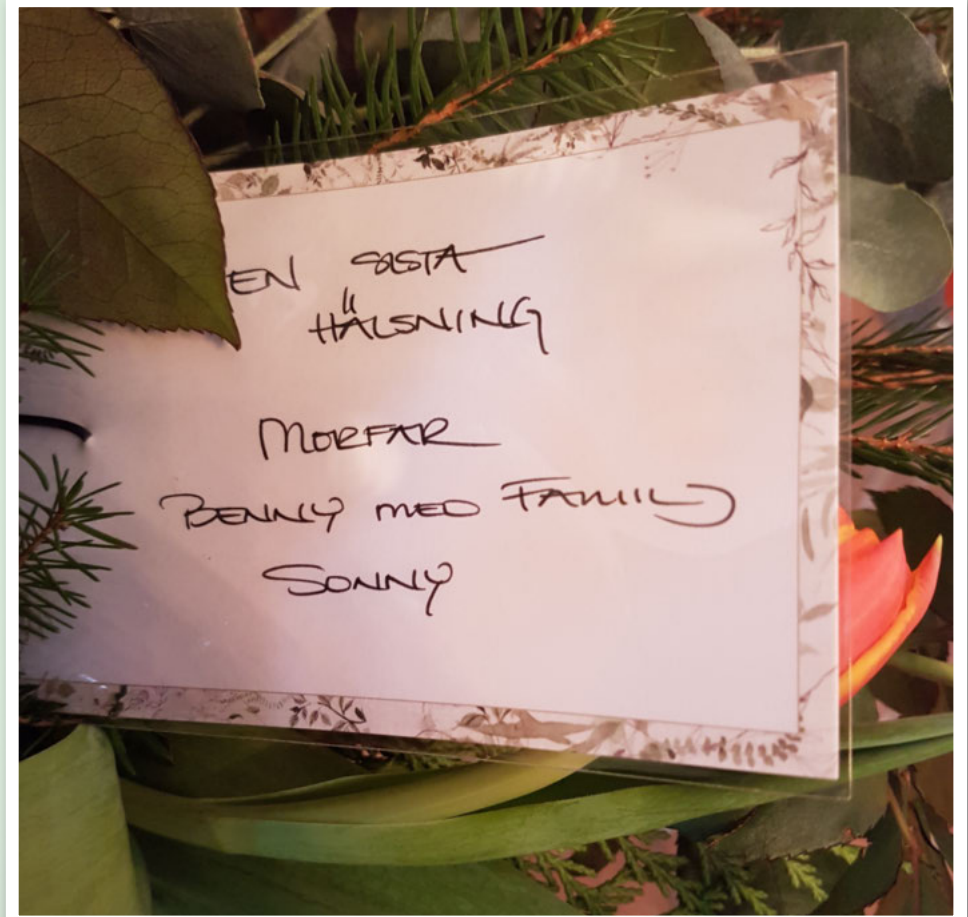 EN SISTA
HÄLSNING
MORFAR
BENNY MED FAMILJ
SONNY